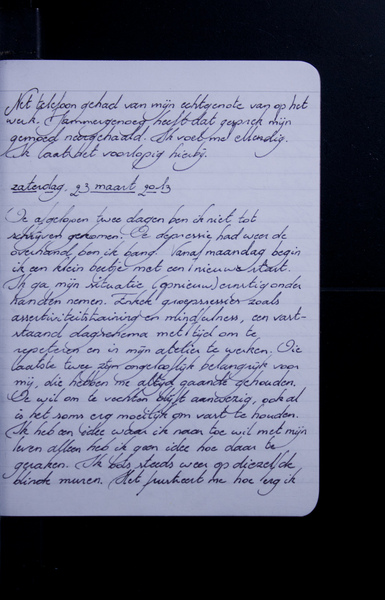 Net telefoon gehad van mijn echtgenote van op het
werk. Jammergenoeg heeft dat gesprek mijn
gemoed neergehaald. Ik voel me ellendig.
Ik laat het voorlopig hierbij.
zaterdag, 23 maart 2013
De afgelopen twee dagen ben ik niet tot
schrijven gekomen. De depressie had weer de
overhand, ben ik bang. Vanaf maandag begin
ik een klein beetje met een nieuwe start.
Ik ga mijn situatie (opnieuw) ernstig onder
handen nemen. Enkel groepssessies zoals
assertiviteitstraining en mindfulness, een vast-
staand dagschema met tijd om te
repeteren en in mijn atelier te werken. Die
laatste twee zijn ongelooflijk belangrijk voor
mij, die hebben me altijd gaande gehouden.
De wil om te vechten blijft aanwezig, ook al
is het soms erg moeilijk om vast te houden.
Ik heb een idee waar ik naar toe wil met mijn
leven alleen heb ik geen idee hoe daar te
geraken. Ik bots steeds weer op diezelfde
blinde muren. Het frustreert me hoe erg ik